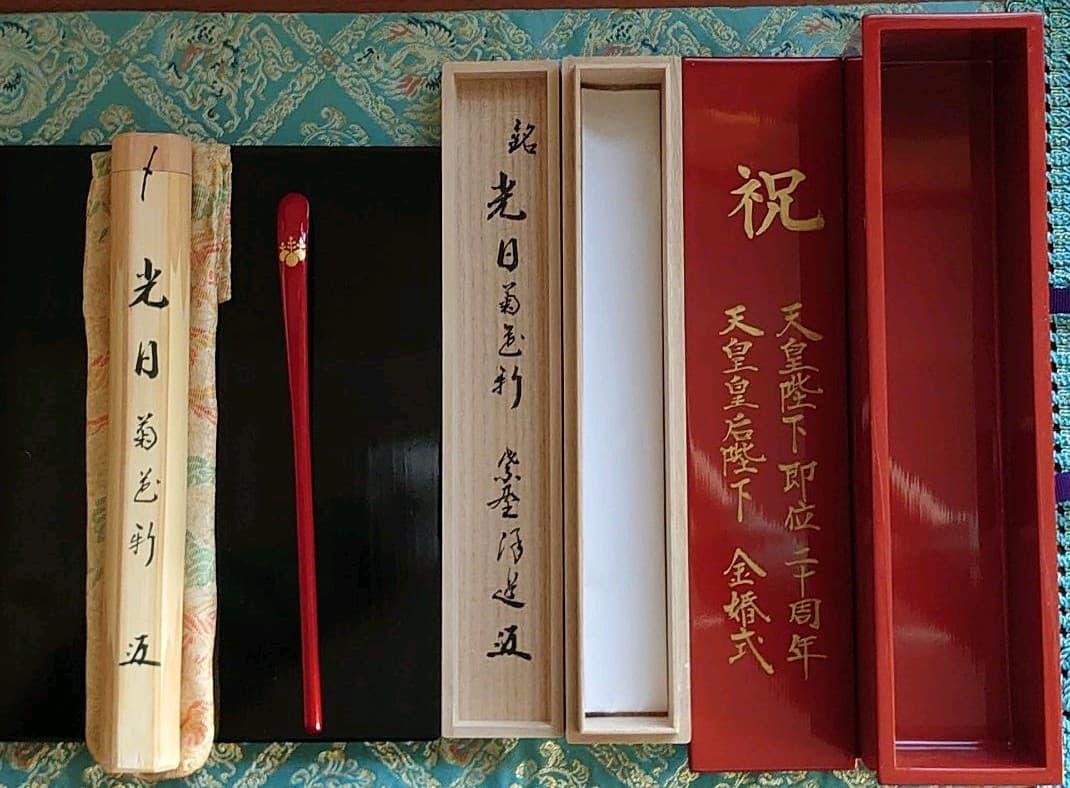 光日菊色新
銘 光日菊色新 紫野
祝
天皇陛下即位二十周年
天皇皇后陛下 金婚式